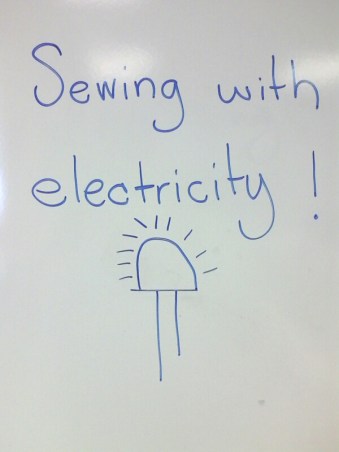 Sewing with
electricity !